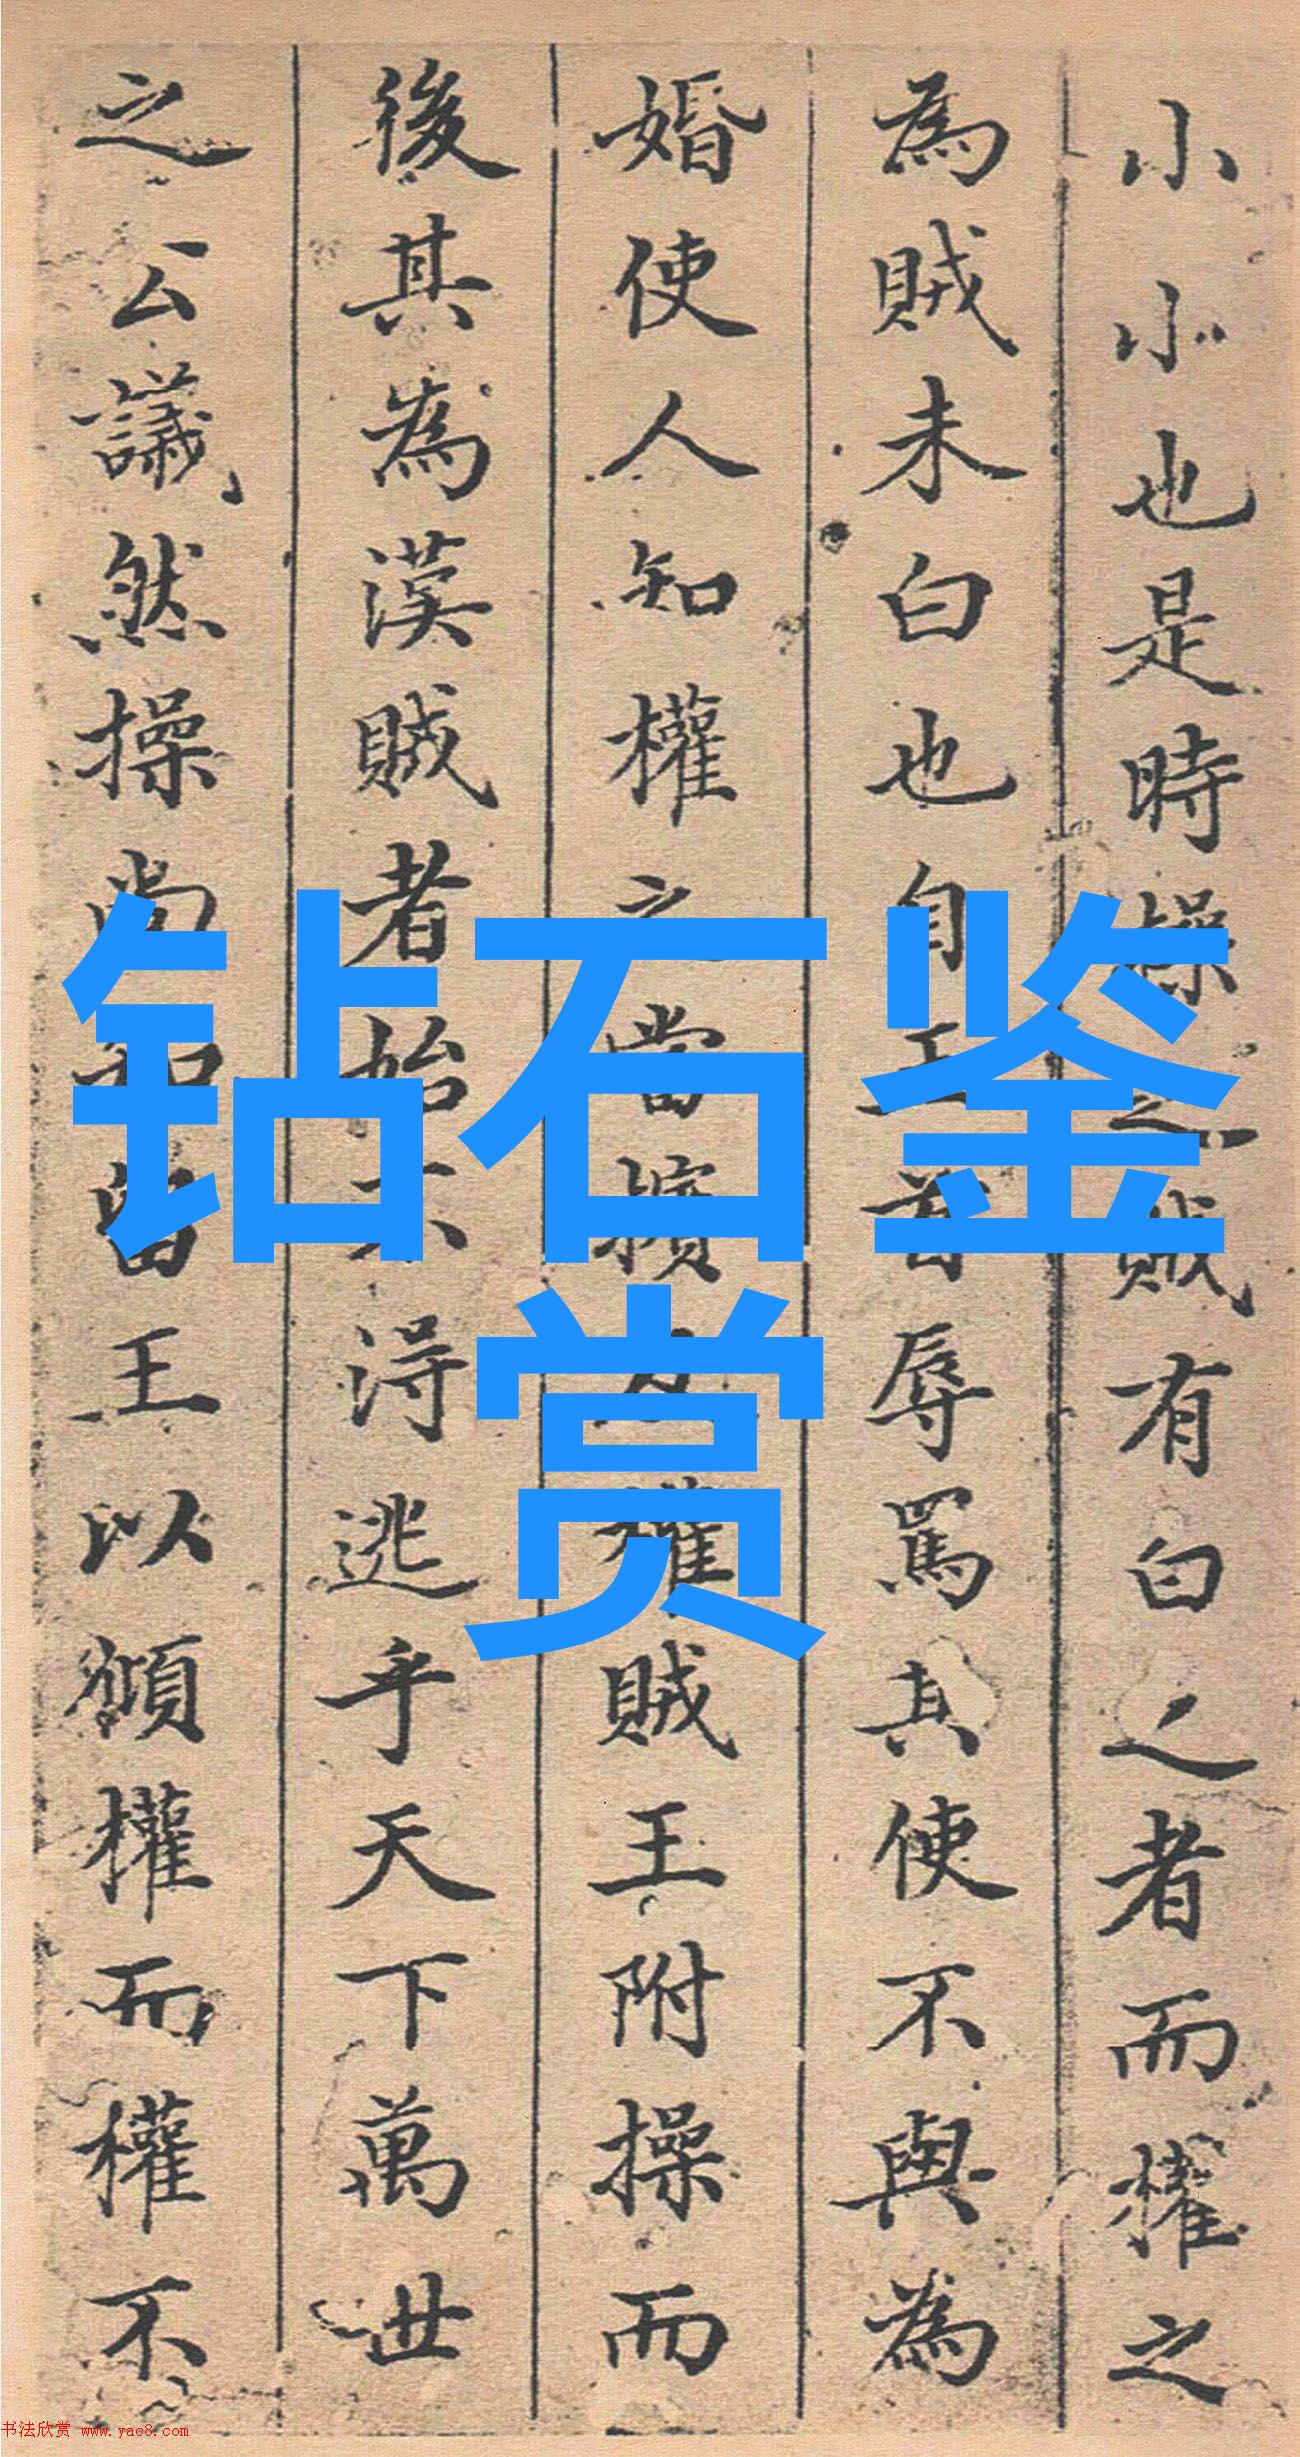 小小也是時操之賊有白之者而權之
為賊未白也自王首辱罵其使不與為
婚使人知權之當擯權賊王附操而
後其為漢賊者始不得逃乎天下萬世
之公議然操尚留王以權而權不
钻石鉴
赏
书法欣赏 www.yac8.com